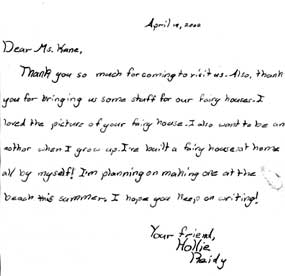 April 12, 2000
Dear Ms. Kane,
Thank you so much for coming to visit us. Also, thank
you for bringing us some stuff for our fairy houses. I
loved the picture of your fairy house. I also want to be an
author when I grow up. I've built a fairy house at home
all by myself! I'm planning on making one at the
beach this summer. I hope you keep on writing!
Your friend,
Hollie
Reidy